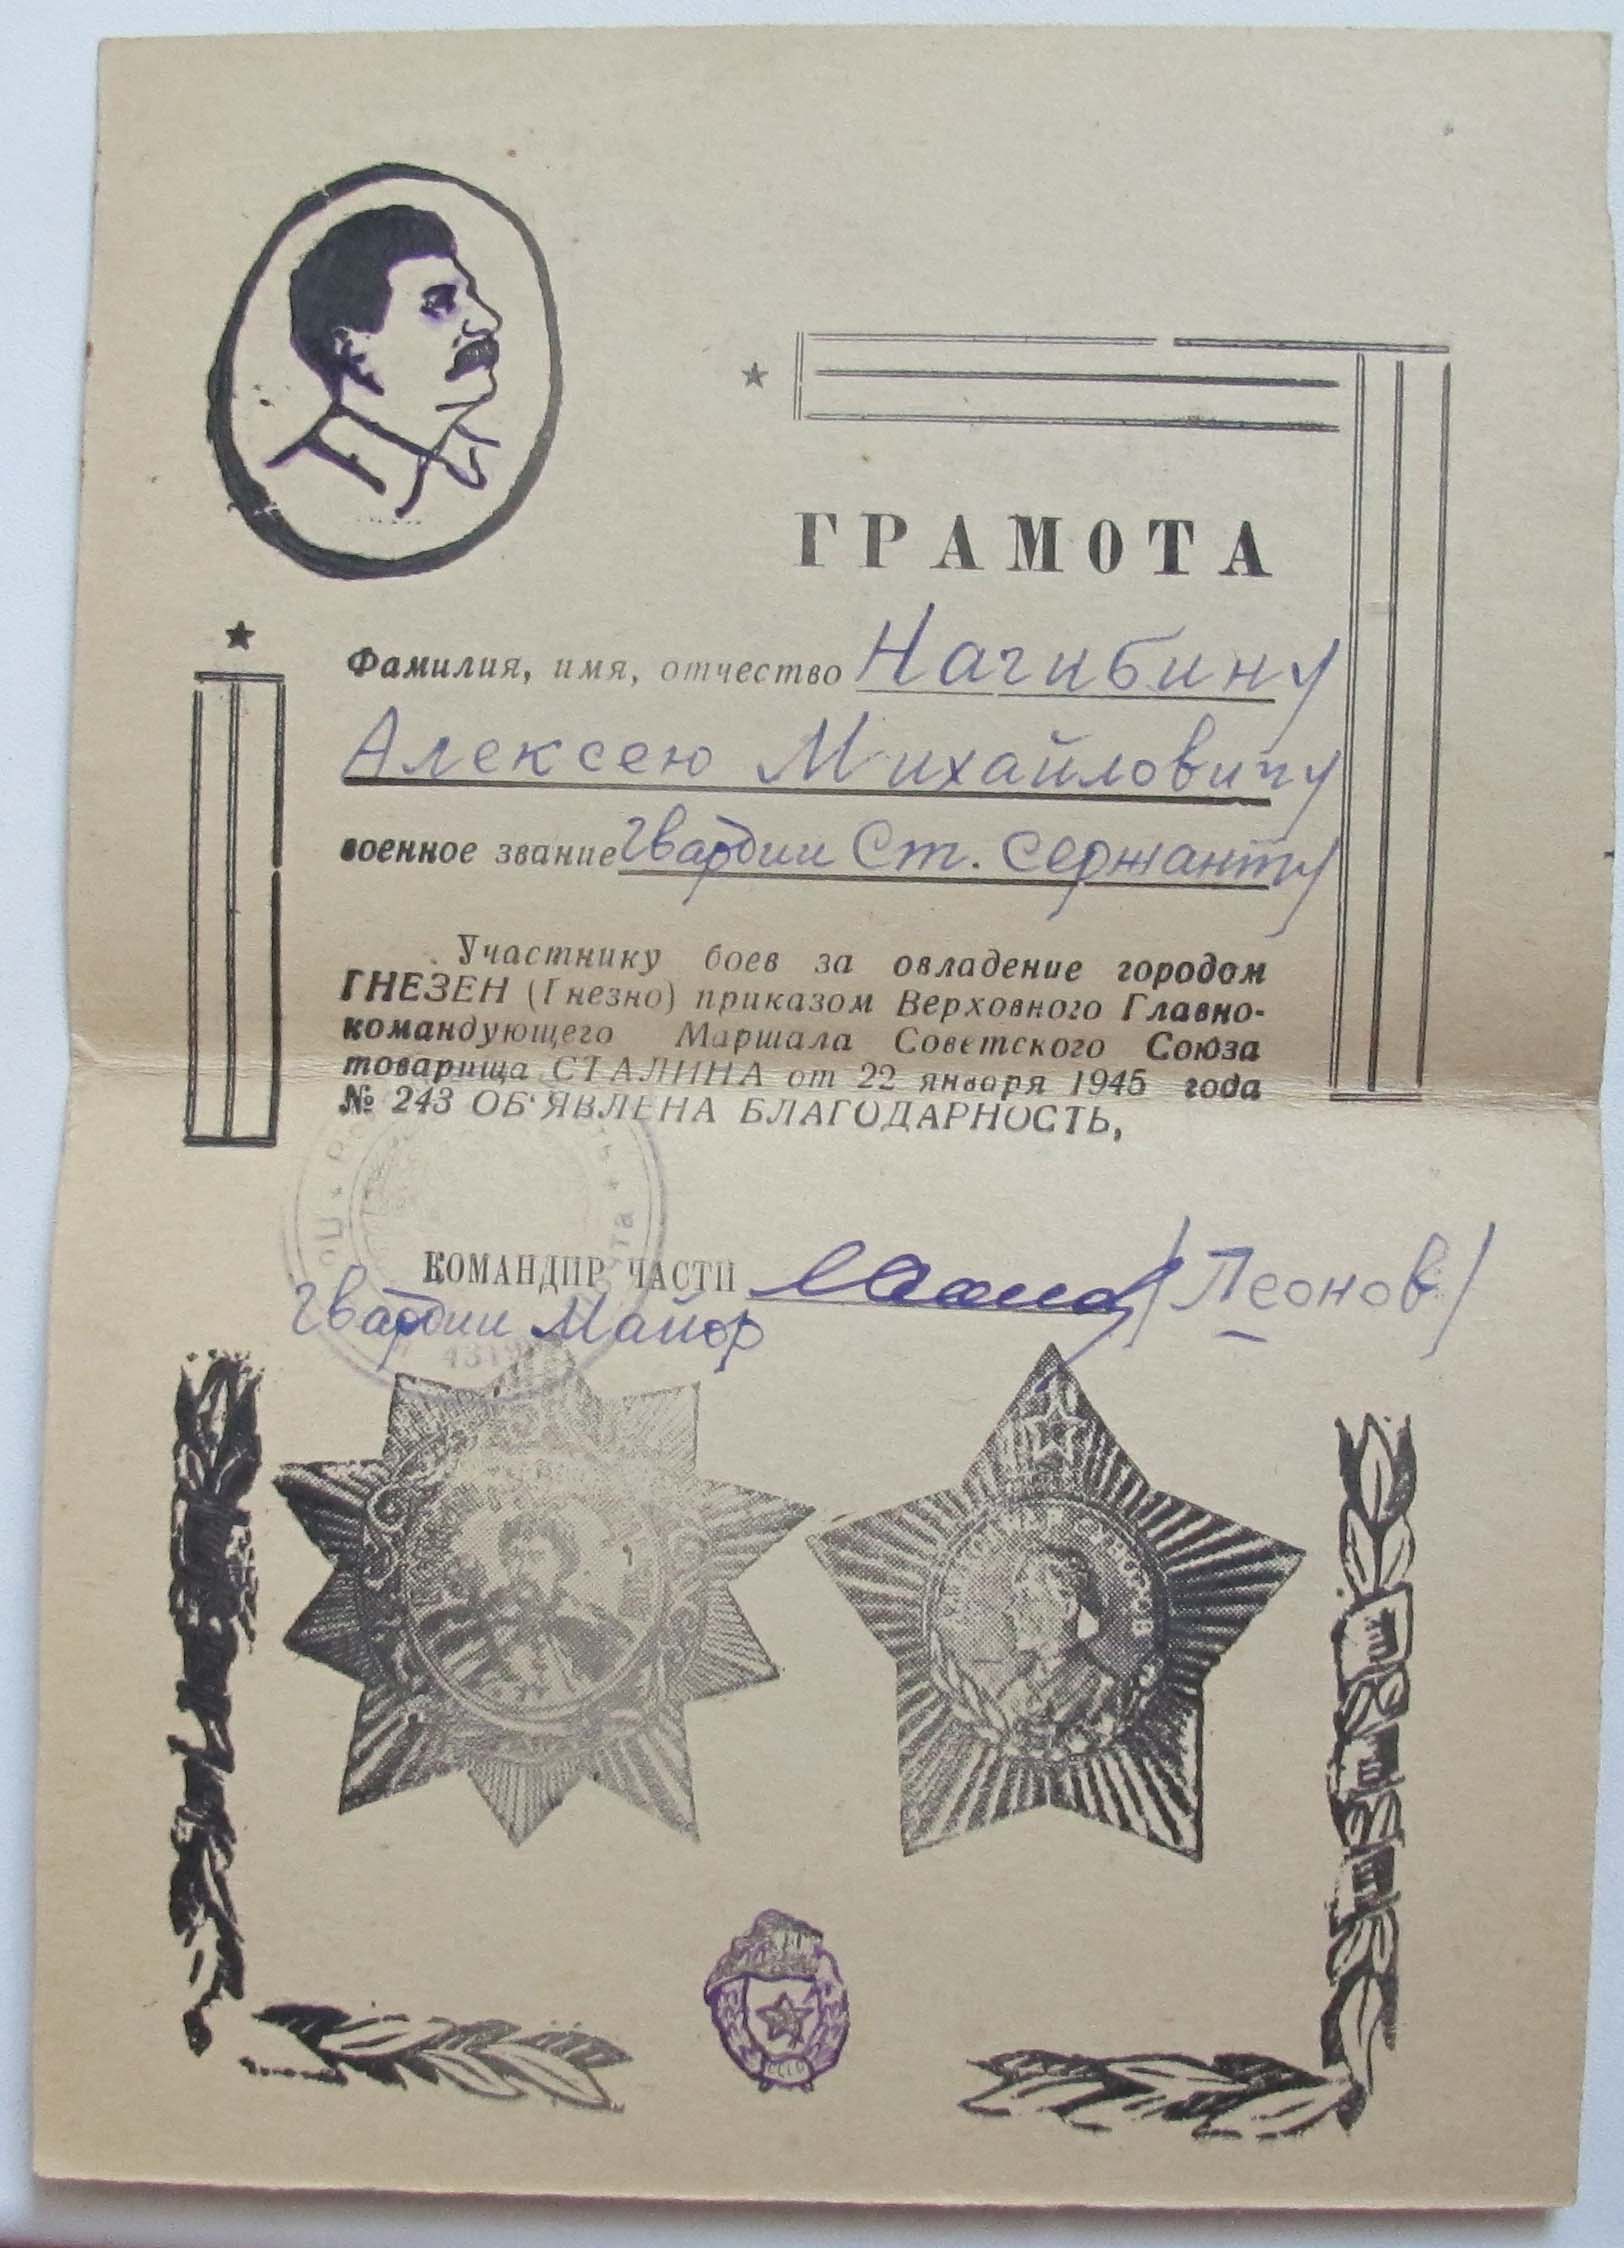 ГРАМОТА
Фамилия, имя, отчество Нагибину
Алексею Михайловичу
военное звание Гвардии Ст. сержанту
Участнику боев за овладение городом
ГНЕЗЕН (Гнезно) приказом Верховного Главно-
командующего Маршала Советского Союза
товарища СТАЛИНА от 22 января 1945 года
№ 243 ОБ'ЯВЛЕНА БЛАГОДАРНОСТЬ,
КОМАНДИР ЧАСТИ /Леонов/
Гвардии Майор
АЛЕКСАНДР СУВОРОВ
СССР